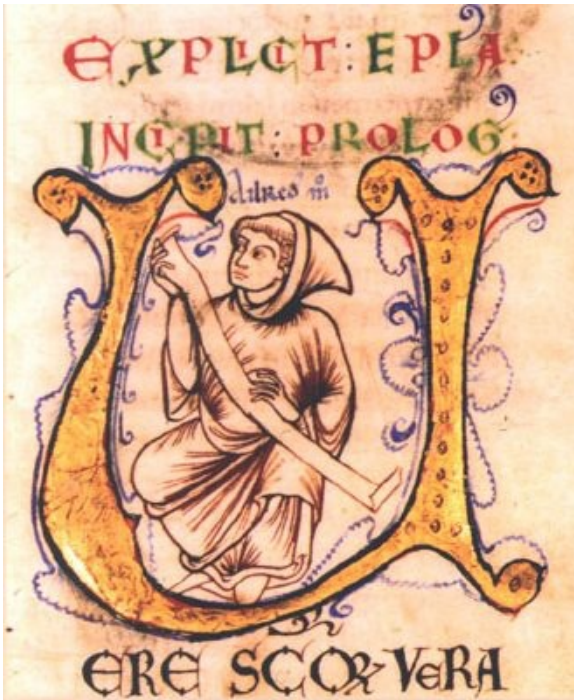 EXPLICIT : EPLA
INCIPIT : PROLOG
U
ERE SCOR VERA